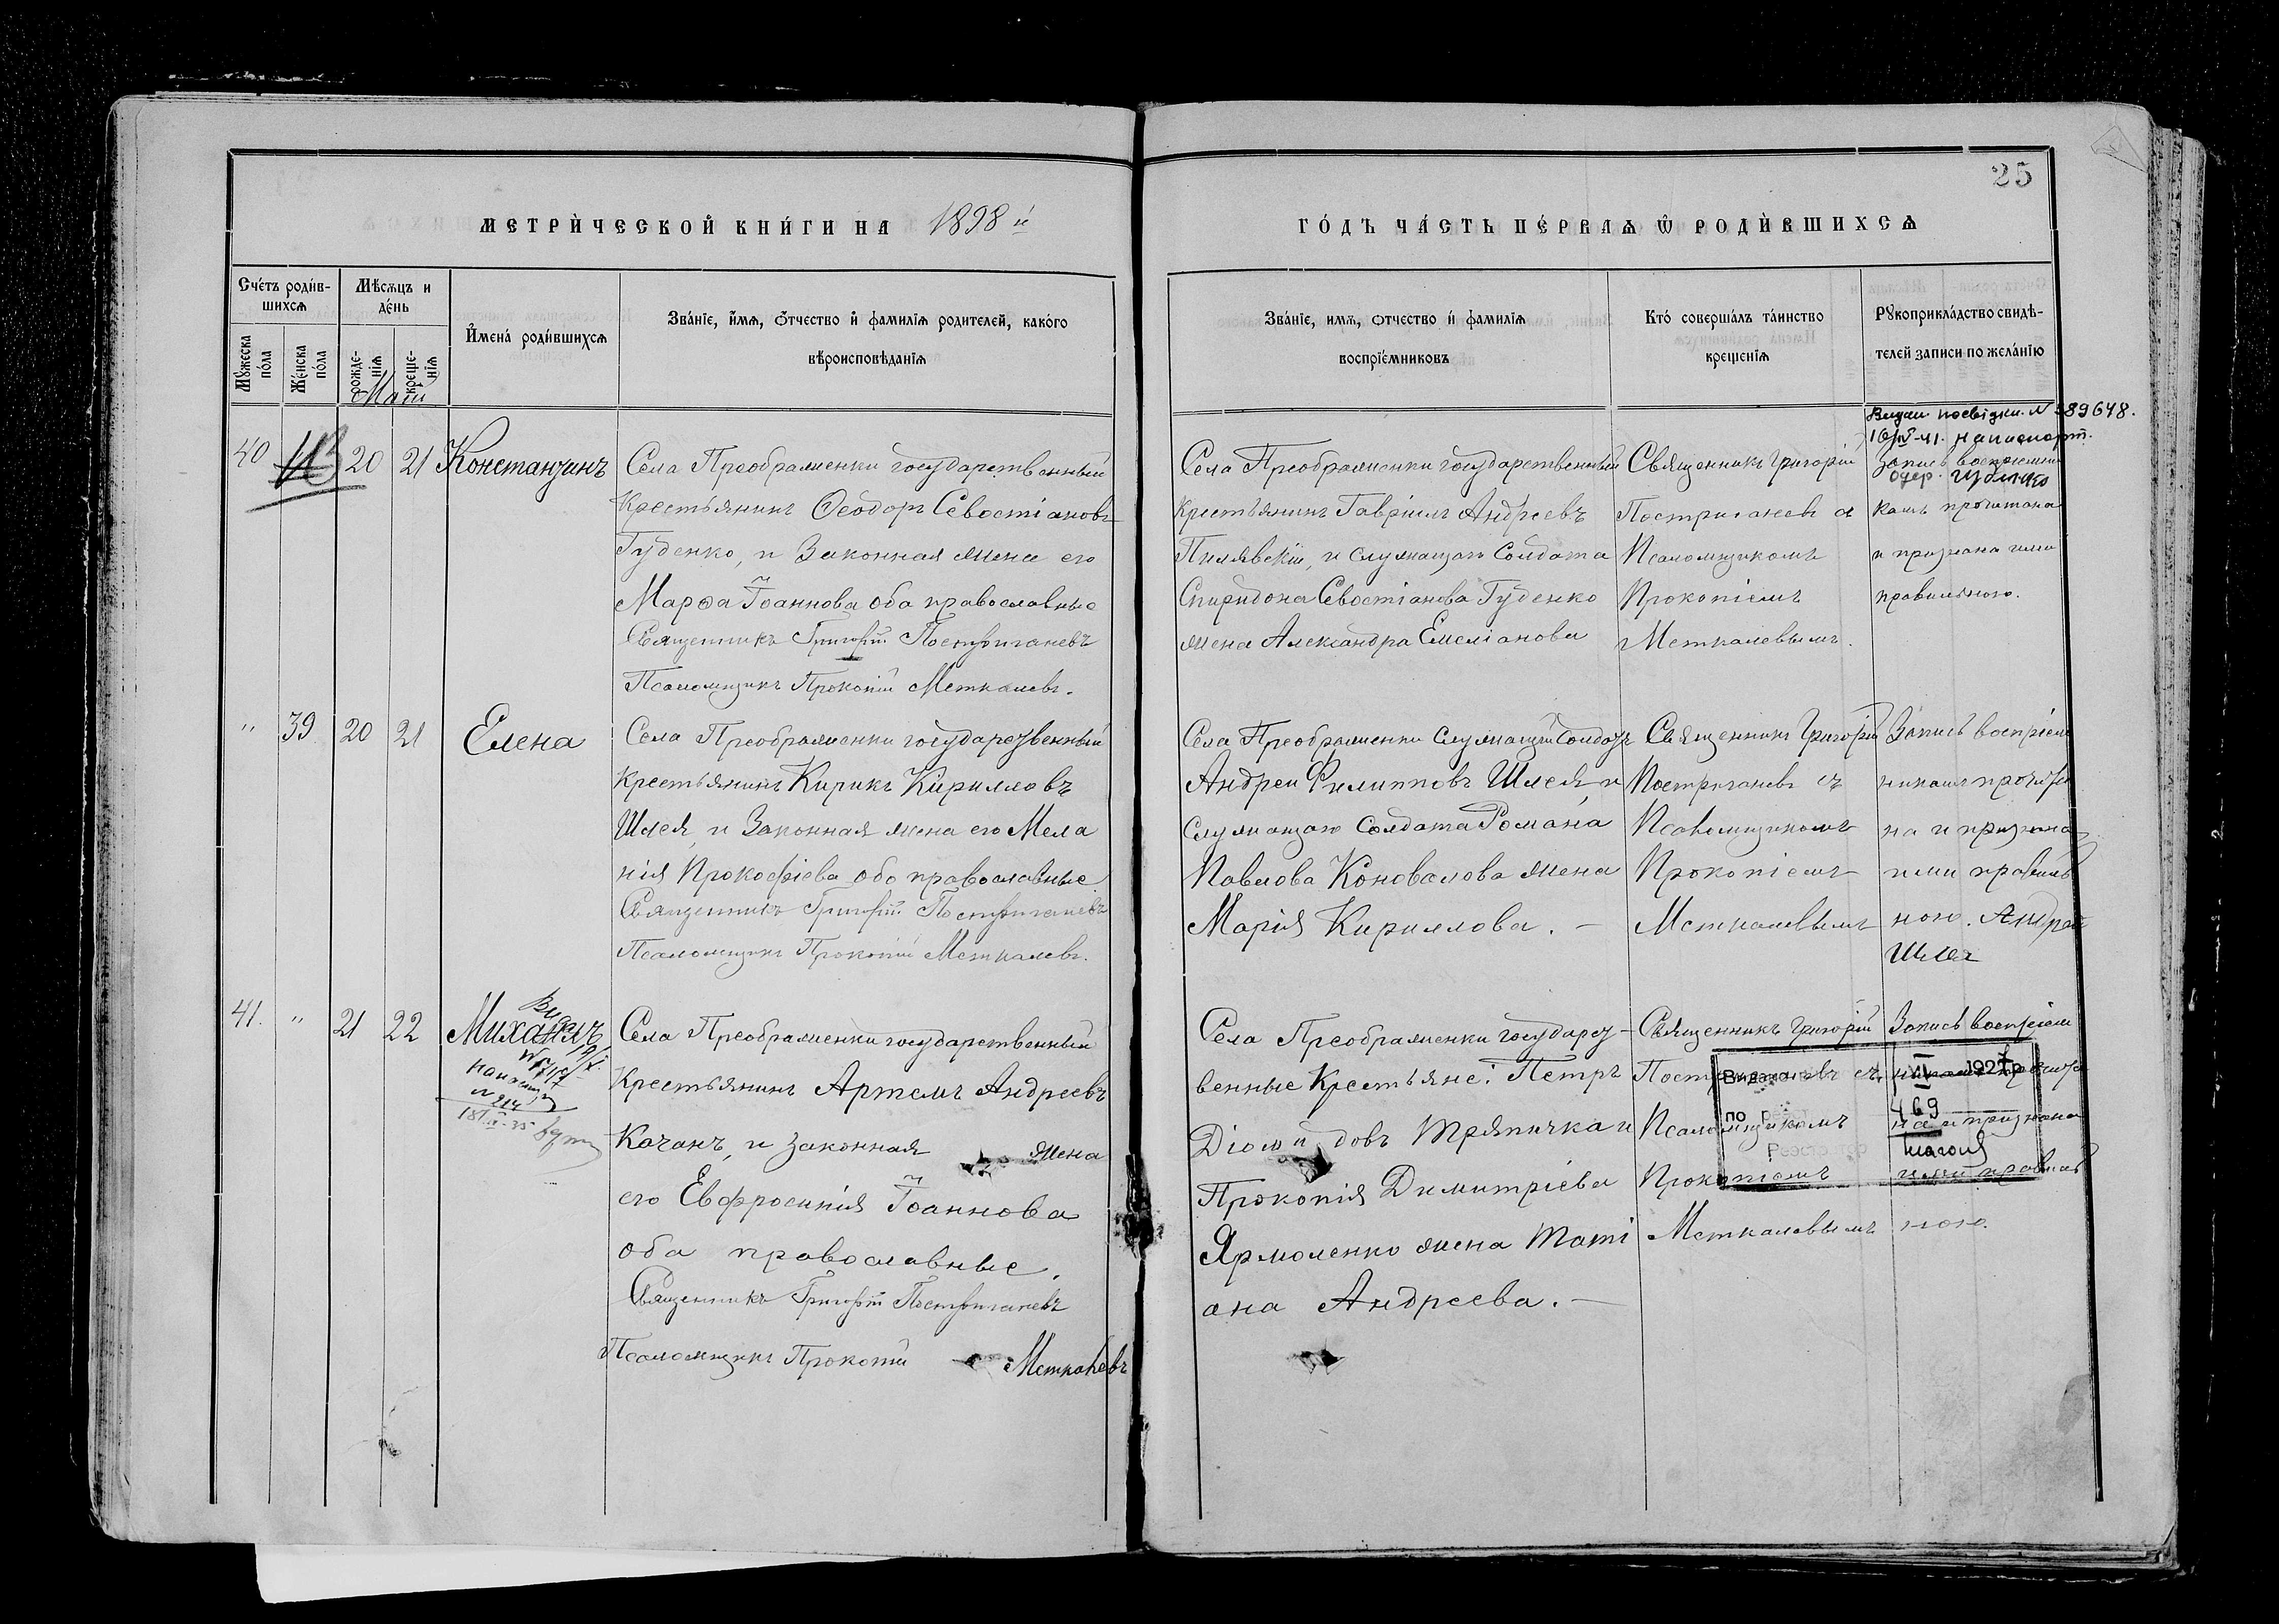 25
МЕТРИ́ЧЕСКОЙ КНИ́ГИ НА 1898 й
ГО́ДЪ ЧА́СТЬ ПЕ́РВАѦ Ѡ РОДИ́ВШИХСѦ
Сче́тъ роди́в-
шихсѧ
Мѣсѧцъ и
де́нь
И҆мена́ роди́вшихсѧ
Зва́нїе, и҆́мѧ, ѻ҆́тчество и҆ фами́лїѧ родителей, како́го
вѣроисповѣ́данїѧ
Мꙋ́жеска
по́ла
Же́нска
по́ла
рожде-
нїѧ
креще-
нїѧ
Маій
Зва́нїе, имѧ, ѻтчество и҆ фами́лїѧ
воспрїе́мниковъ
Кто́ соверша́лъ та́инство
креще́нїѧ
Рꙋкоприкла́дство свидѣ́-
телей записи по жела́нїю
40
20
21
Константинъ
Села Преображенки государственный
Крестьянинъ Ѳеодоръ Севостіановъ
Гуденко, и Законная жена его
Марѳа Іоаннова оба православные
Священникъ Григорій Постриганевъ
Псаломщикъ Прокопій Меткалевъ.
Села Преображенки государственный
Крестьянинъ Гавріилъ Андреевъ
Пилявскій, и служащаго Солдата
Спиридона Севостіанова Гуденко
жена Александра Емеліанова
Священникъ Григорій
Постриганевъ съ
Псаломщикомъ
Прокопіемъ
Меткалевымъ.
16/IV-41. на паспорт.
Запись воспріемни
камъ прочитана
и признана ими
правильною.
"
39
20
21
Елена
Села Преображенки государственный
Крестьянинъ Кирикъ Кирилловъ
Шлея, и Законная жена его Мела
нія Прокофіева оба православные
Священникъ Григорій Постриганевъ
Псаломщикъ Прокопій Меткалевъ.
Села Преображенки Служащій Солдатъ
Андрей Филипповъ Шлея, и
Служащаго Солдата Романа
Павлова Коновалова жена
Марія Кириллова. –
Священникъ Григорій
Постриганевъ съ
Псаломщикомъ
Прокопіемъ
Меткалевымъ
Запись воспріем
никамъ прочита
на и признана
ими правиль
ною. Андрей
Шлея
41.
"
21
22
Михаилъ
Села Преображенки государственный
Крестьянинъ Артемъ Андреевъ
Качанъ, и законная жена
его Евфросинія Іоаннова
оба православные.
Священникъ Григорій Постриганевъ
Псаломщикъ Прокопій Меткалевъ
Села Преображенки государст-
венные Крестьяне: Петръ
Діомидовъ Тряпичка и
Прокопія Димитріева
Ярмоленко жена Таті
ана Андреева. –
Священникъ Григорій
Постриганевъ съ
Псаломщикомъ
Прокопіемъ
Меткалевымъ
Запись воспріем
никамъ прочита
на и признана
ими правиль
ною.
VI 1927 р
по
469